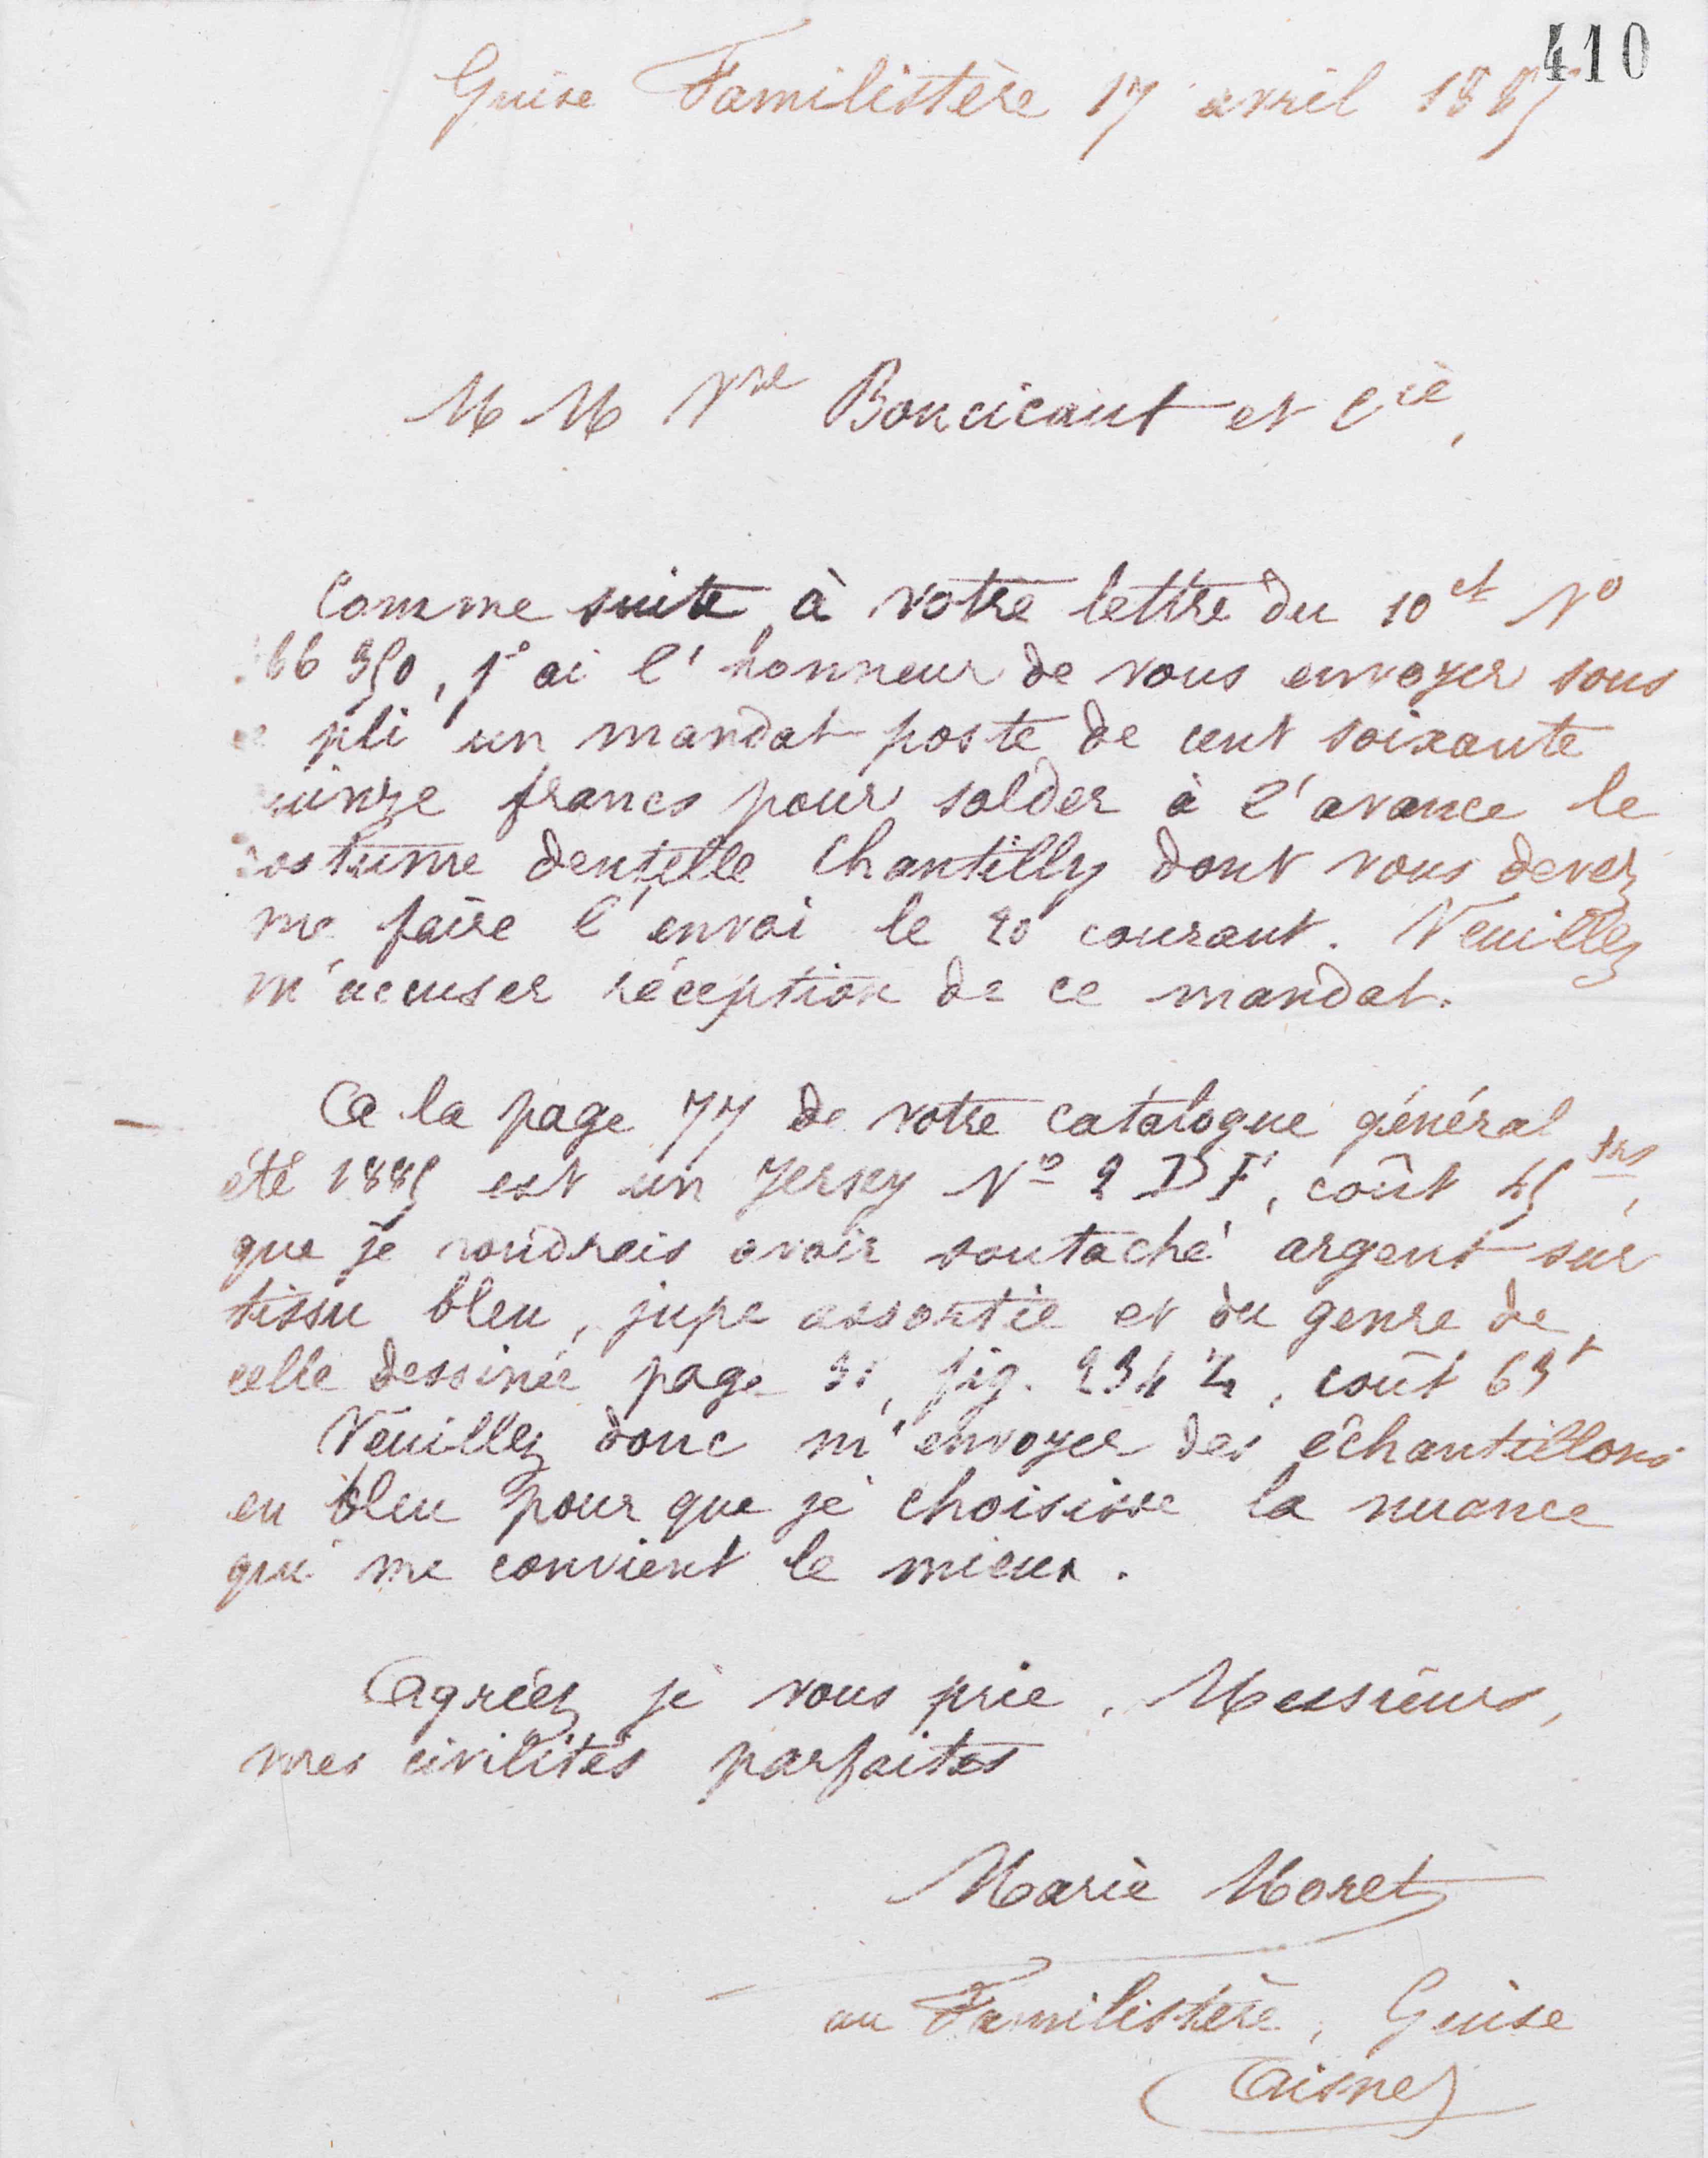 410
Guise Familistère 17 avril 1885
MM Vve Boucicaut et Cie,
Comme suite à votre lettre du 10 ct No
66 350, j'ai l'honneur de vous envoyer sous
pli un mandat poste de cent soixante
quinze francs pour solder à l'avance le
costume dentelle Chantilly dont vous devez
me faire l'envoi le 20 courant. Veuillez
m'accuser réception de ce mandat.
A la page 77 de votre catalogue général
été 1885 est un Jersey No 2 DF, coût 45 frs,
que je voudrais avoir soutaché argent sur
tissu bleu, jupe assortie et du genre de
celle dessinée page fig. 234 Z, coût 63 f
Veuillez donc m'envoyer des échantillons
en bleu pour que je choisisse la nuance
qui me convient le mieux.
Agréez je vous prie, Messieurs,
mes civilités parfaites
Marie Moret
au Familistère, Guise
Aisne